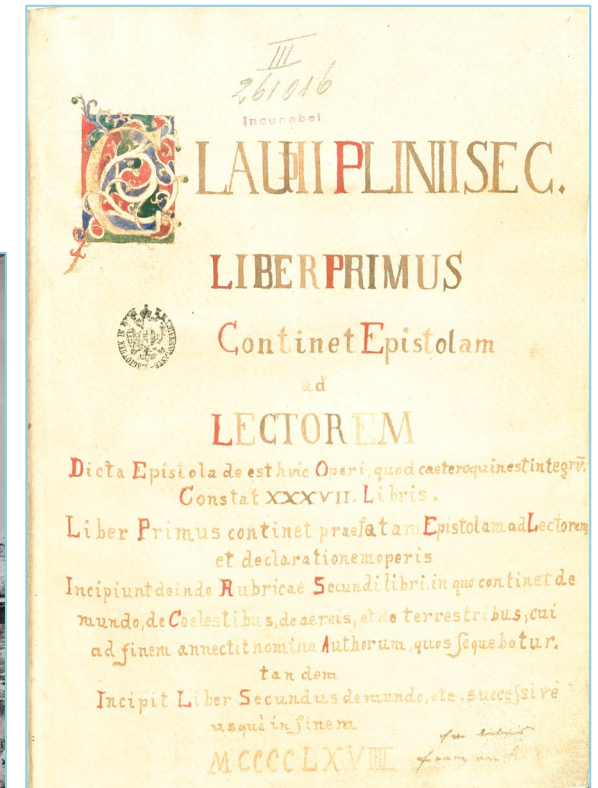 III
261016
Incunabel
CLAUDII PLINII SEC.
LIBER PRIMUS
Continet Epistolam
ad
LECTOREM
Dicta Epistola de est huic Operi, quod caeteroqui nest integrũ.
Constat XXXVII. Libris.
Liber Primus continet praefatam Epistolam ad Lectorem
et declarationem operis
Incipiunt deinde Rubricae Secundi libri, in quo continet de
mundo, de Coelestibus, de aereis, et de terrestribus, cui
ad finem annectit nomina Authorum, quos sequebatur.
tandem
Incipit Liber Secundus de mundo, etc. successive
usquè in finem
MCCCCLXVIIII